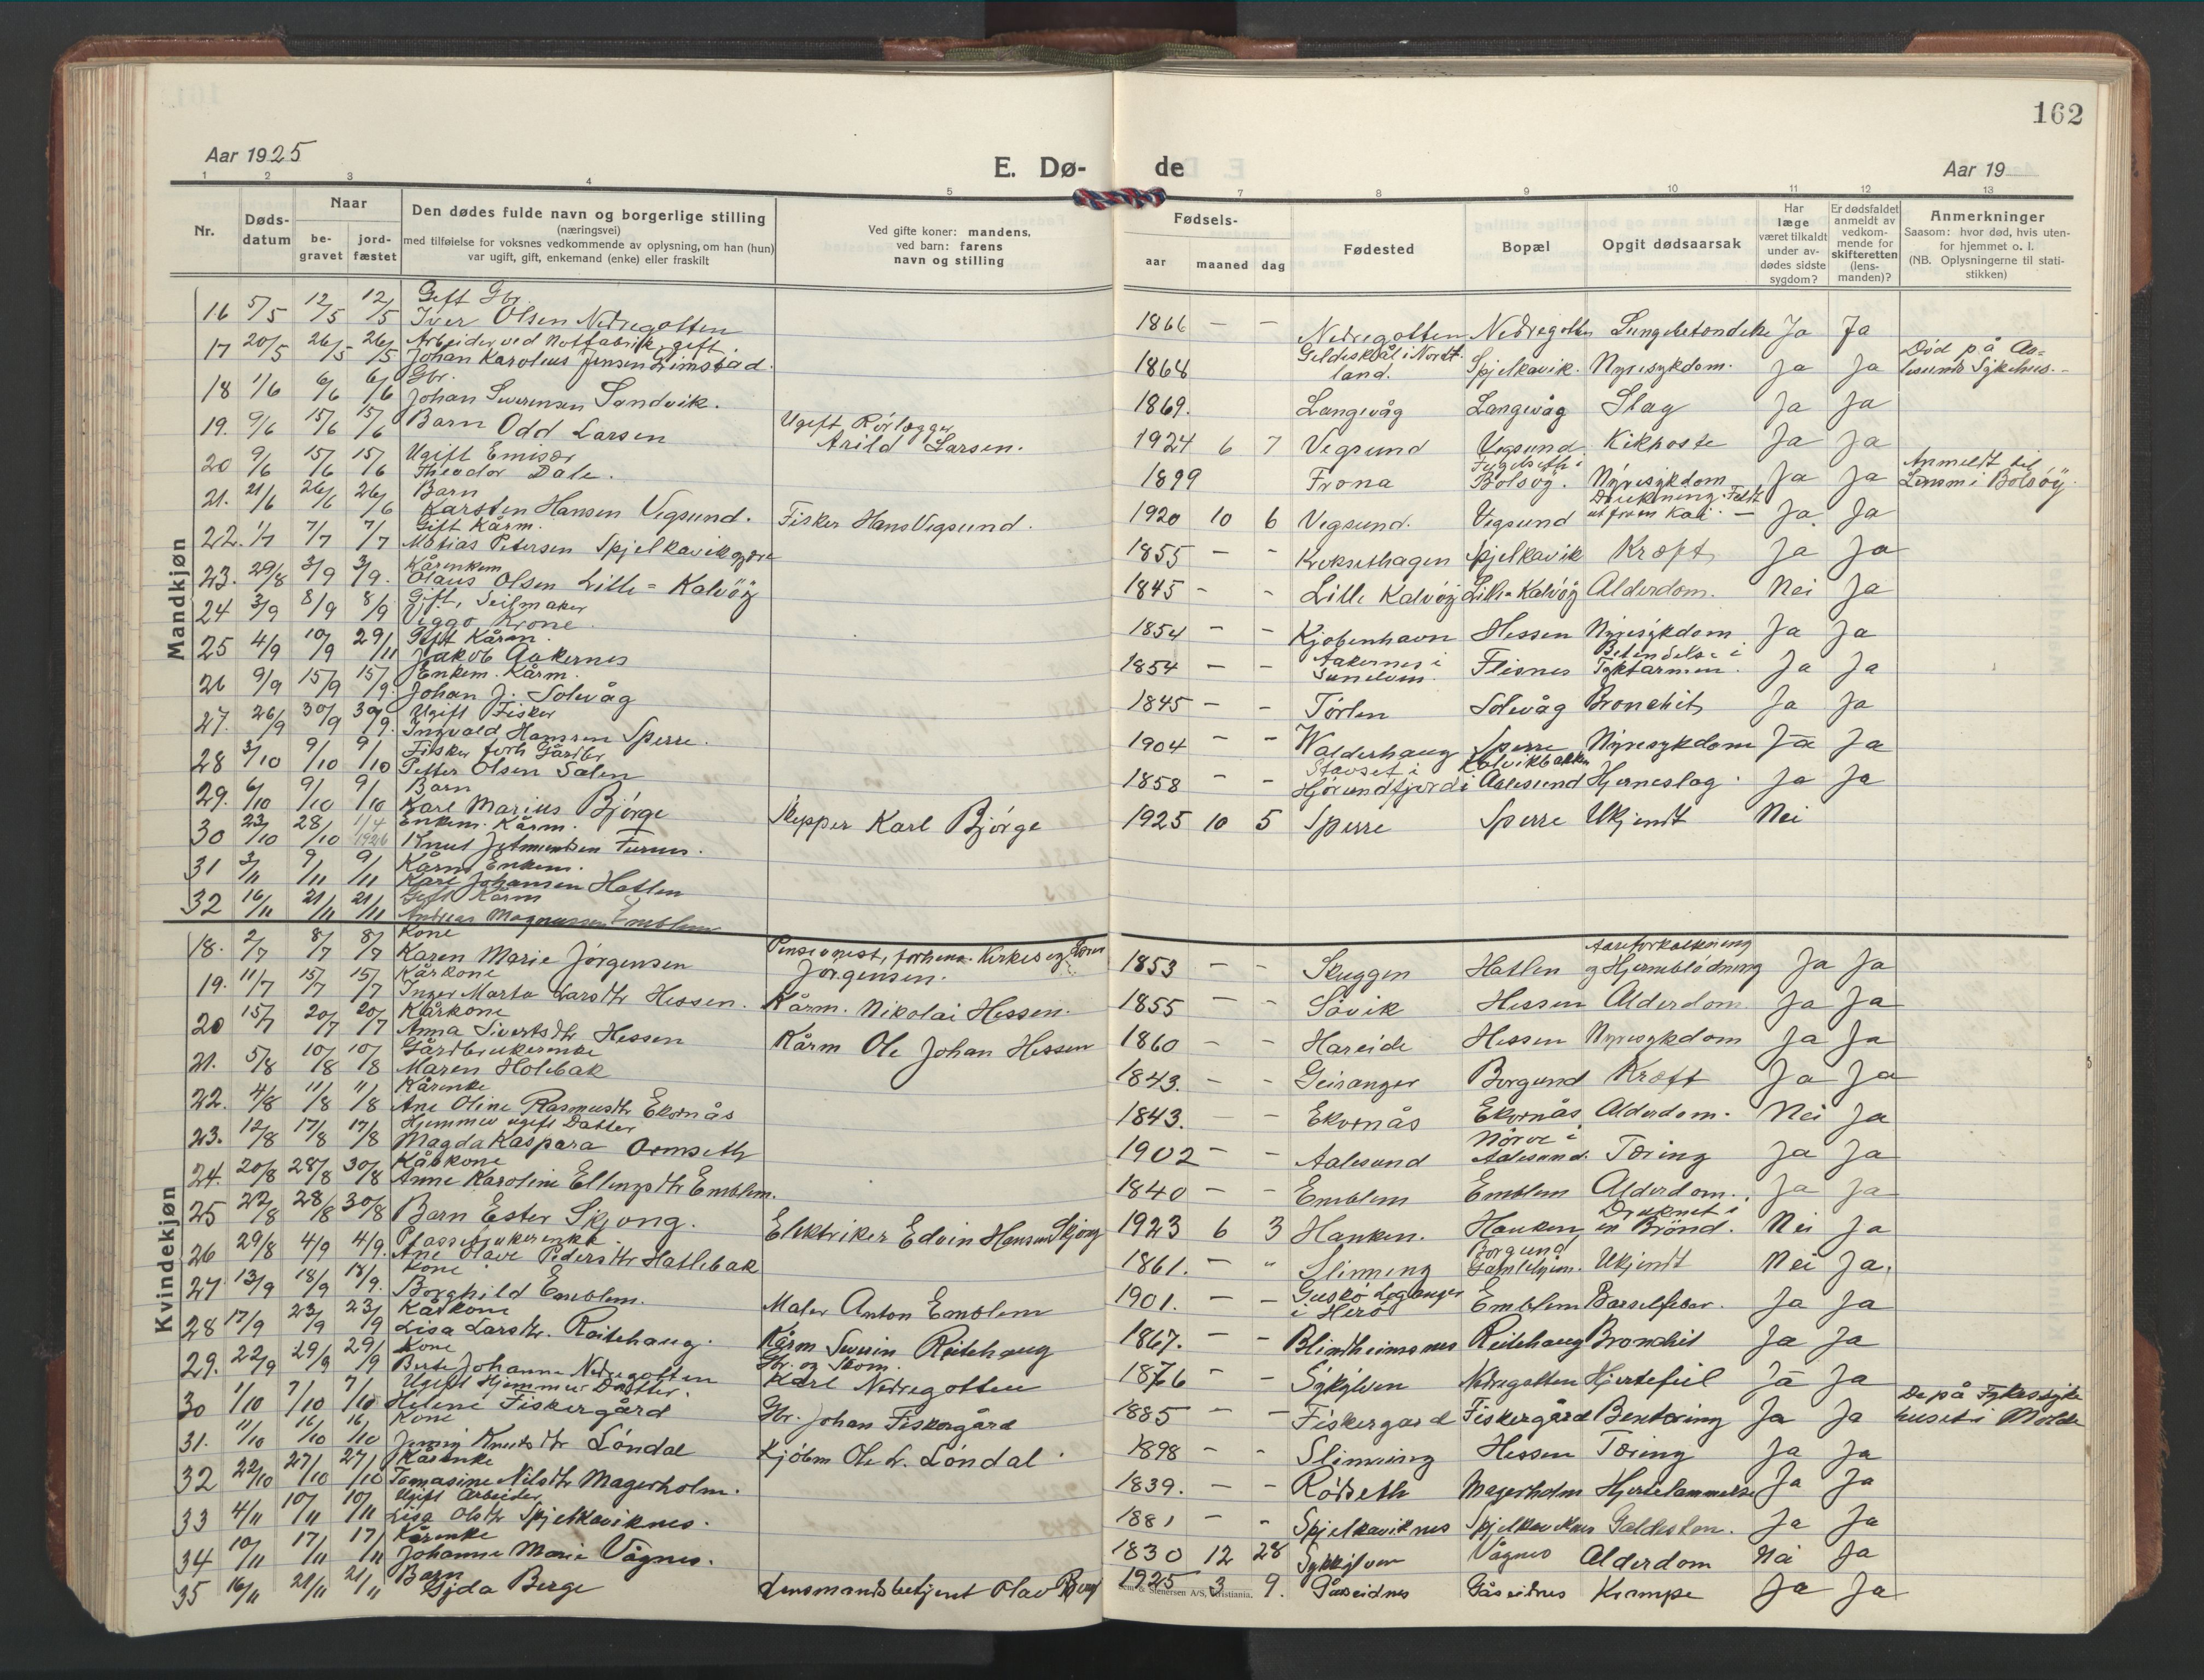 162
Aar 1925
E. Dø- de
Aar 19
1 2 3 4 5 7 8 9 10 11 12 13
Nr.
Døds-
datum
Naar
be-
gravet
jord-
fæstet
Den dødes fulde navn og borgerlige stilling
(næringsvei)
med tilføielse for voksnes vedkommende av oplysning, om han (hun)
var ugift, gift, enkemand (enke) eller fraskilt
Ved gifte koner: mandens,
ved barn: farens
navn og stilling
Fødsels-
aar maaned dag
Fødested
Bopæl
Opgit dødsaarsak
Har
læge
været tilkaldt
under av-
dødes sidste
sygdom?
Er dødsfaldet
anmeldt av
vedkom-
mende for
skifteretten
(lens-
manden)?
Anmerkninger
Saasom: hvor død, hvis uten-
for hjemmet o. l.
(NB. Oplysningerne til stati-
stikken)
Mandkjøn
Gift Gbr.
16 5/5 12/5 12/5 Iver Olsen Nedregotten 1866 – – Nedregotten Nedregotten Lungebetendelse Ja Ja
Arbeider ved Notfabrik, gift.
17 20/5 26/5 26/5 Johan Karolius Jensen Grimstad. 1868 Gildeskål i Nord-
land. Spjelkavik. Nyresykdom. Ja Ja Död på Aa-
lesunds Sykehus.
Gbr.
18 1/6 6/6 6/6 Johan Severensen Sandvik. 1869. Langevåg Langevåg Slag Ja Ja
19. 9/6 15/6 15/6 Barn Odd Larsen Ugift Rörlægger
Arild Larsen. 1924 6 7 Vegsund Vegsund Kikhoste Ja Ja
Ugift Emisær
20 9/6 15/6 15/6 Theodor Dale. 1899 Frona Bolsöy. Nyresykdom Ja Ja Anmeldt til
Lensm i Bolsöy.
Barn
21. 21/6 26/6 26/6 Karsten Hansen Vegsund. Fisker Hans Vegsund. 1920 10 6 Vegsund. Vegsund Drukning. Falt
ut fra en Kai. – Ja. Ja
Gift Kårm.
22. 1/7 7/7 7/7 Matias Petersen Spjelkavikøyre 1855 – – Kroksethagen Spjelkavik Kræft Ja Ja
Kårenkem
23. 29/8 3/9 3/9. Olaus Olsen Lille-Kalvöy 1845 – – Lille Kalvöy Lille-Kalvöy Alderdom. Nei Ja
Gift, Seilmaker
24 3/9 8/9 8/9 Viggo Krone. 1854 – – Kjöbenhavn Hessen Nyresykdom Ja Ja
Gift Kårm.
25 4/9 10/9 29/11 Jakob Aakernes 1854 – – Aakernes i
Sunelven. Flisnes Betendelse i
Tyktarmen. Ja Ja
Enkem. Kårm.
26 9/9 15/9 15/9. Johan J. Solevåg 1845 – – Törlen Solevåg Bronchit Ja Ja
Ugift Fisker
27. 26/9 30/9 30/9. Ingvald Hansen Sperre. 1904 – – Walderhaug Sperre Nyresykdom Ja Ja
Fisker forh Gårdbr
28 3/10 9/10 9/10 Petter Olsen Sælen 1858 – – Stavset i
Hjörundfjord Kalvikbakken
i Aalesund Hjerneslag. Ja Ja
Barn
29. 6/10 9/10 9/10 Karl Marius Bjørge Skipper Karl Bjørge 1925 10 5 Sperre Sperre Ukjendt Nei
Enkem. Kårm.
30 23/10 28/10 1/4 1926 Knut Furnes.
Kårm Enkem.
31 3/11 9/11 9/11 Karl Johansen Hatlen
Gift Kårm
32 16/11 21/11 21/11 Andreas Magnussen Emblem
Kvindekjøn
Kone
18. 2/7 8/7 8/7 Karen Marie Jørgensen Pensionist, forhenv. Kirkesanger
Jörgensen. 1853 – – Skuggen Hatlen Aareforkalkning
og Hjerneblödning Ja Ja
Kårkone
19. 11/7 15/7 15/7 Inger Marta Larsdtr Hessen. Kårm. Nikolai Hessen. 1855 – – Sövik Hessen Alderdom Ja Ja
Kårkone
20 15/7 20/7 20/7 Anna Sivertsdtr Hessen Kårm Ole Johan Hessen 1860 – – Hareide Hessen Nyresykdom Ja Ja
Gårdbrukerenke
21. 5/8 10/8 10/8 Maren Holebak 1843. – – Geiranger Borgund Kræft Ja Ja
Kårenke
22. 4/8 11/8 11/8 Ane Oline Rasmusdtr Ekornås 1843. – – Ekornås Ekornås Alderdom. Nei Ja
Hjemmev ugift Datter
23. 12/8 17/8 17/8 Magda Kaspara Ormseth 1902 – – Aalesund Nörve i
Aalesund. Tæring Ja Ja
Kårkone
24. 20/8 28/8 30/8 Anne Karoline Ellingsdtr Emblem. 1840 – – Emblem Emblem Alderdom. Ja Ja
25 22/8 28/8 30/8 Barn Ester Skjong. Elektriker Edvin Hansen Skjong 1923 6 3 Hanken. Hanken Druknet i
en Brönd. Nei Ja
Plassebrukerenke
26 29/8 4/9 4/9. Ane Olave Pedersdtr Hatlebak 1861. – " Slinning Borgund
Gamlehjem. Ukjendt Nei Ja.
Kone
27. 13/9 18/9 18/9. Borghild Emblem. Maler Anton Emblem 1901. – – Guskö Leganger
i Herö Emblem Barselfeber. Ja Ja
Kårkone
28 17/9 23/9 23/9 Lisa Larsdtr. Reitehaug. Kårm Severin Reitehaug 1867. – – Blindheimsnes Reitehaug Bronchit Ja Ja
Kone
29. 22/9 29/9 29/9 Berte Johanne Nedregotten Gbr. og Skom.
Karl Nedregotten 1876 – – Sykylven Nedregotten Hjertefeil Ja Ja
Ugift Hjemmev Datter.
30 1/10 7/10 7/10 Helene Fiskergård Gbr. Johan Fiskergård 1885 – – Fiskergard Fiskergård Bentæring Ja Ja huset i Molde
Kone
31. 11/10 16/10 16/10 Jenny Knutsdtr Löndal Kjöbm Ole L. Löndal 1898 – – Slinning Hessen Tæring Ja Ja
Kårenke
32 22/10 27/10 27/10 Tomasine Nilsdtr Magerholm. 1839. – – Rödseth Magerholm Hjertelammelse Ja Ja
Ugift Arbeider
33 4/11 10/11 10/11 Lisa Olsdtr Spjelkaviknes. 1881 – – Spjelkaviknes Spjelkaviknes Galdesten. Ja Ja
Kårenke
34 10/11 17/11 17/11 Johanne Marie Vågnes. 1830 12 28 Sykkylven Vågnes Alderdom Nei Ja
Barn
35 16/11 21/11 21/11 Gyda Berge Lensmandsbetjent Olav Berge 1925 3 9. Gåseidnes Gåseidnes Krampe Ja Ja
& Stenersen A/S, Kristiania.